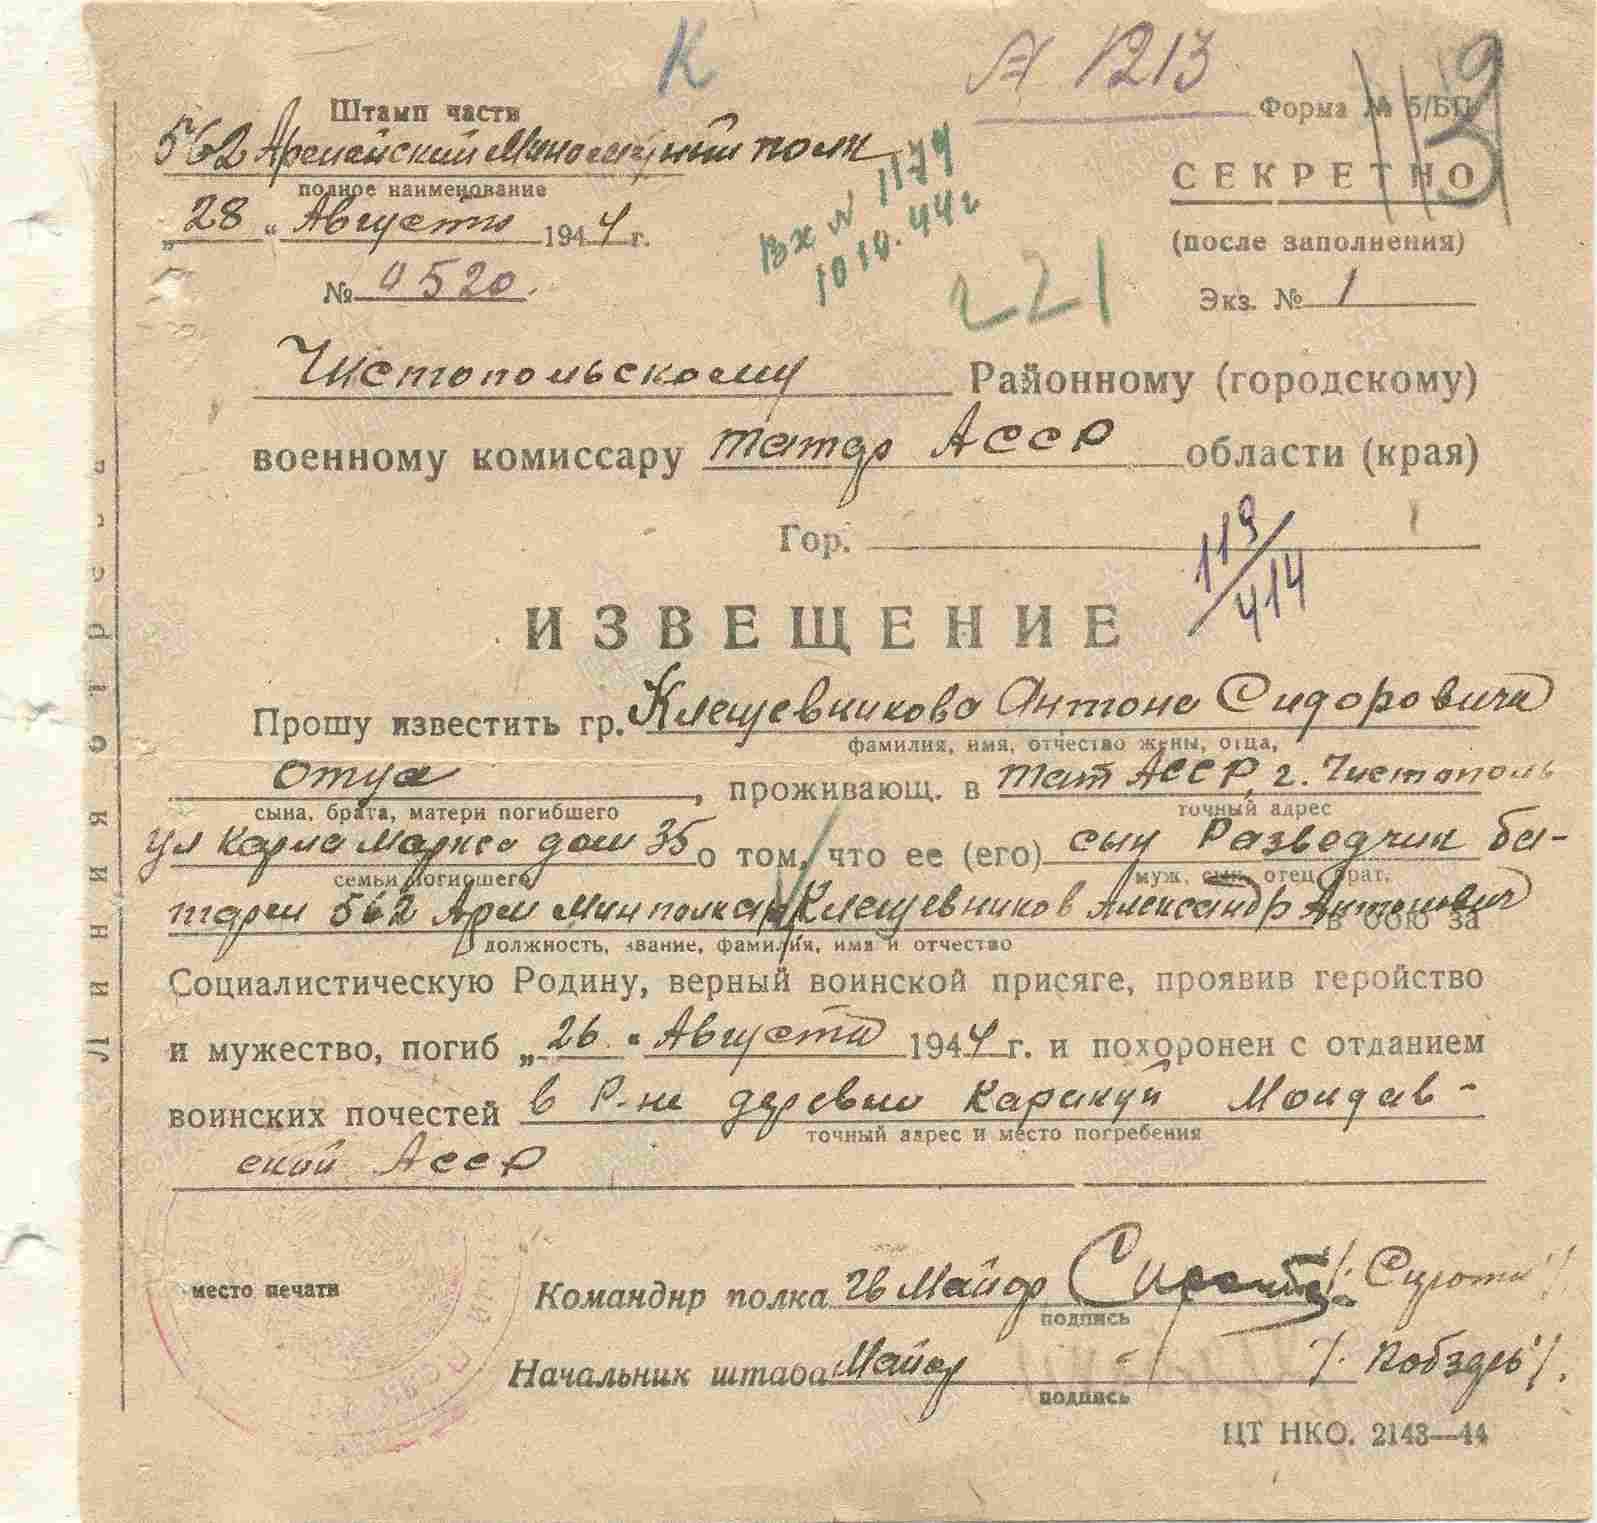 К
А 1213
119
Штамп части
Форма № 5/БП
562 Армейский Минометный полк
полное наименование
СЕКРЕТНО
„28“ Августа 1944 г.
Вх N 1179
10 10. 44 г
(после заполнения)
№ 0520.
221
Экз. № 1
Чистопольскому Районному (городскому)
военному комиссару Татар АССР области (края)
Гор.
119/414
ИЗВЕЩЕНИЕ
Прошу известить гр. Клещевникова Антона Сидоровича
фамилия, имя, отчество жены, отца,
отца, проживающ. в Тат АССР, г. Чистополь
сына, брата, матери погибшего
точный адрес
ул Карла Маркса дом 35 о том, что ее (его) сын Разведчик ба-
семьи погибшего
муж, сын, отец, брат,
тареи 562 Арм Минполка Клещевников Александр Антонович в бою за
должность, звание, фамилия, имя и отчество
Социалистическую Родину, верный воинской присяге, проявив геройство
и мужество, погиб „26“ Августа 1944 г. и похоронен с отданием
воинских почестей в Р-не деревни Каракуй Молдав-
точный адрес и место погребения
ский АССР
место печати
Командир полка Гв Майор /Сирота/
подпись
Начальник штаба Майор
подпись
ЦТ НКО. 2143—44
Линия